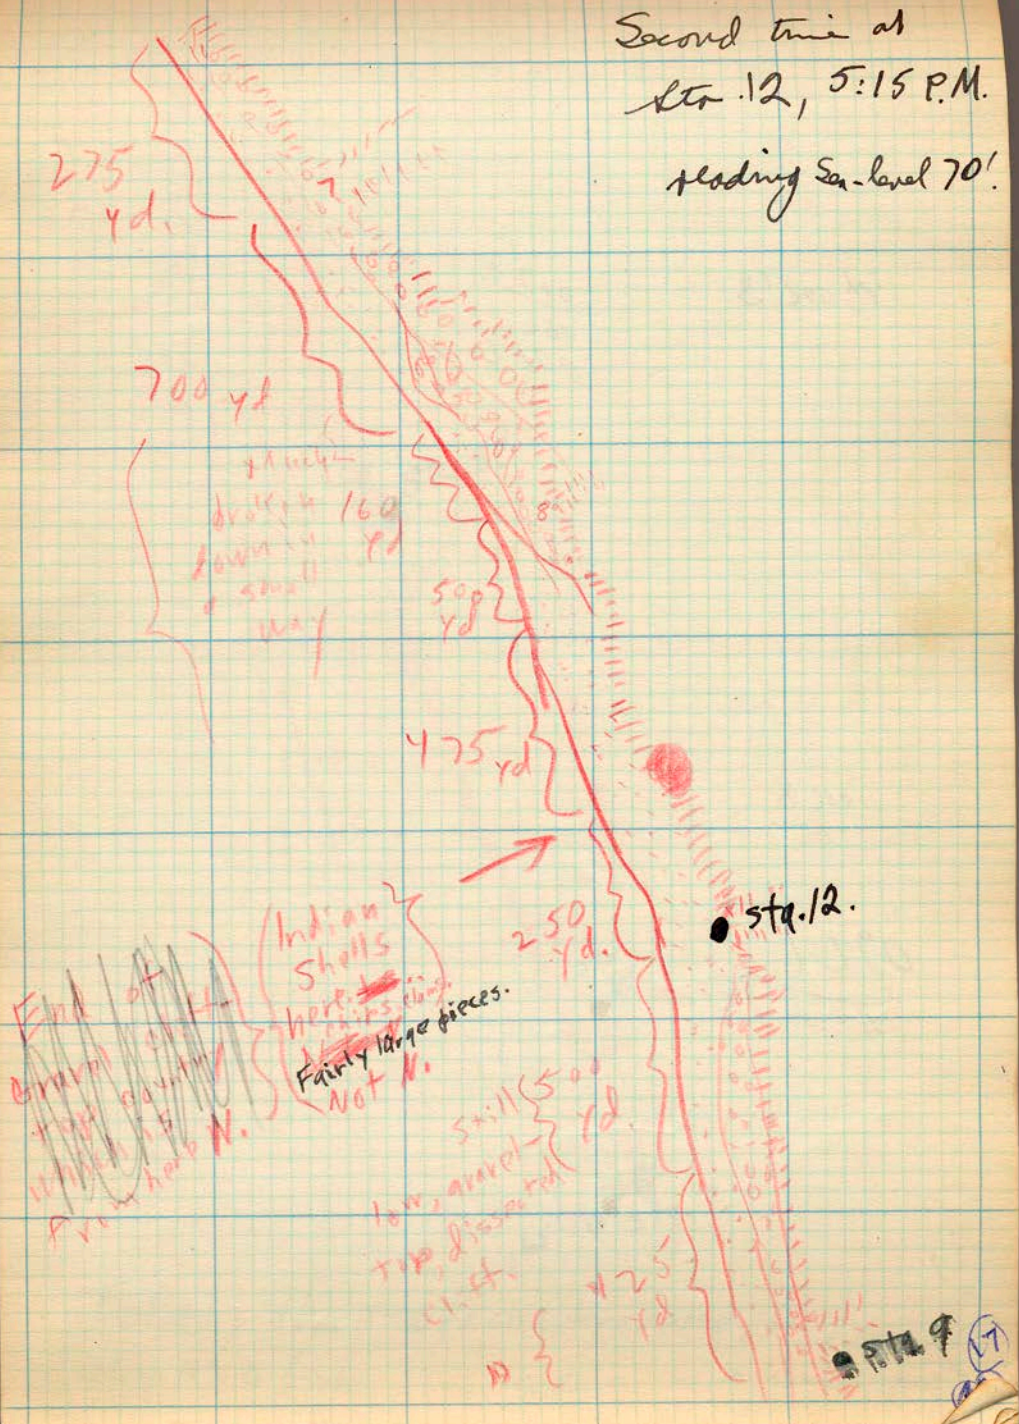 Second time at
Sta. 12, 5:15 P.M.
reading Sea-level 70'.
275
yd.
700 yd
broken
down in
a small
way
160
yd
500
yd
475 yd
250
yd.
sta. 12.
Indian
Shells
here.
chips
Fairly large pieces.
Not N.
End of
Gravel
top
which is
from here N.
still
low, gravel-
top, dissected
cliff.
500
yd.
425
yd
sta. 9
17